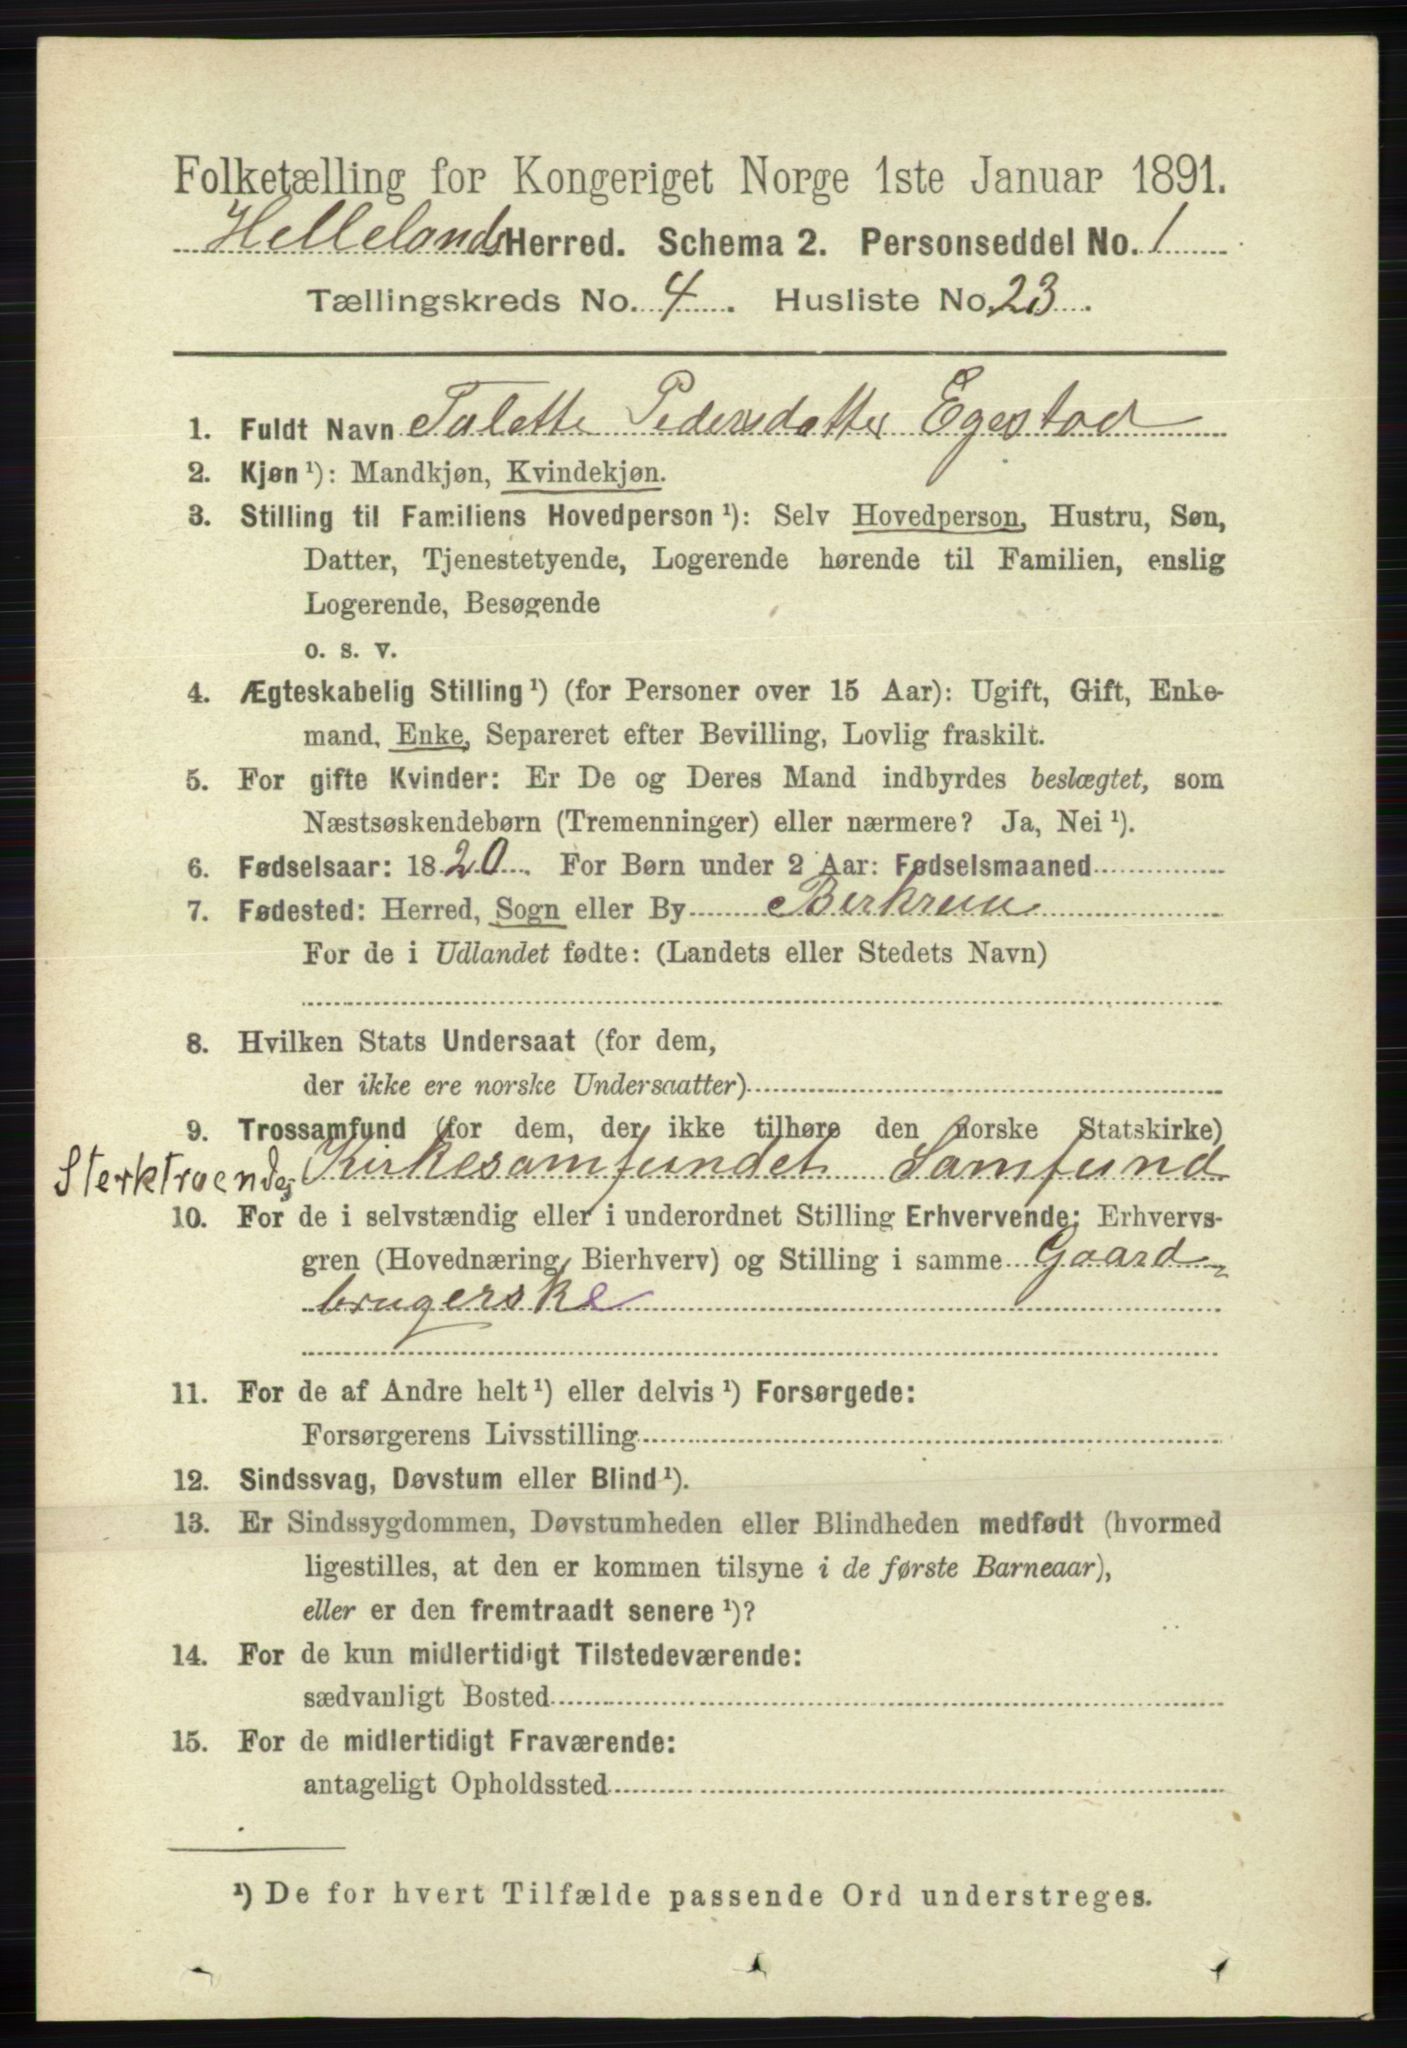 Folketælling for Kongeriget Norge 1ste Januar 1891.
Hellelands Herred. Schema 2. Personseddel No. 1
Tællingskreds No. 4. Husliste No. 23.
1. Fuldt Navn Talette Pedersdatter Egestad
2. Kjøn ¹): Mandkjøn, Kvindekjøn.
3. Stilling til Familiens Hovedperson ¹): Selv Hovedperson, Hustru, Søn,
Datter, Tjenestetyende, Logerende hørende til Familien, enslig
Logerende, Besøgende
o. s. v.
4. Ægteskabelig Stilling ¹) (for Personer over 15 Aar): Ugift, Gift, Enke-
mand, Enke, Separeret efter Bevilling, Lovlig fraskilt.
5. For gifte Kvinder: Er De og Deres Mand indbyrdes beslægtet, som
Næstsøskendebørn (Tremenninger) eller nærmere? Ja, Nei ¹).
6. Fødselsaar: 1820. For Børn under 2 Aar: Fødselsmaaned
7. Fødested: Herred, Sogn eller By Birkrem
For de i Udlandet fødte: (Landets eller Stedets Navn)
8. Hvilken Stats Undersaat (for dem,
der ikke ere norske Undersaatter)
9. Trossamfund (for dem, der ikke tilhøre den norske Statskirke)
Sterktroendes Kirkesamfundet Samfund
10. For de i selvstændig eller i underordnet Stilling Erhvervende: Erhvervs-
gren (Hovednæring, Bierhverv) og Stilling i samme Gaard-
brugerske
11. For de af Andre helt ¹) eller delvis ¹) Forsørgede:
Forsørgerens Livsstilling
12. Sindssvag, Døvstum eller Blind ¹).
13. Er Sindssygdommen, Døvstumheden eller Blindheden medfødt (hvormed
ligestilles, at den er kommen tilsyne i de første Barneaar),
eller er den fremtraadt senere ¹)?
14. For de kun midlertidigt Tilstedeværende:
sædvanligt Bosted
15. For de midlertidigt Fraværende:
antageligt Opholdssted
¹) De for hvert Tilfælde passende Ord understreges.